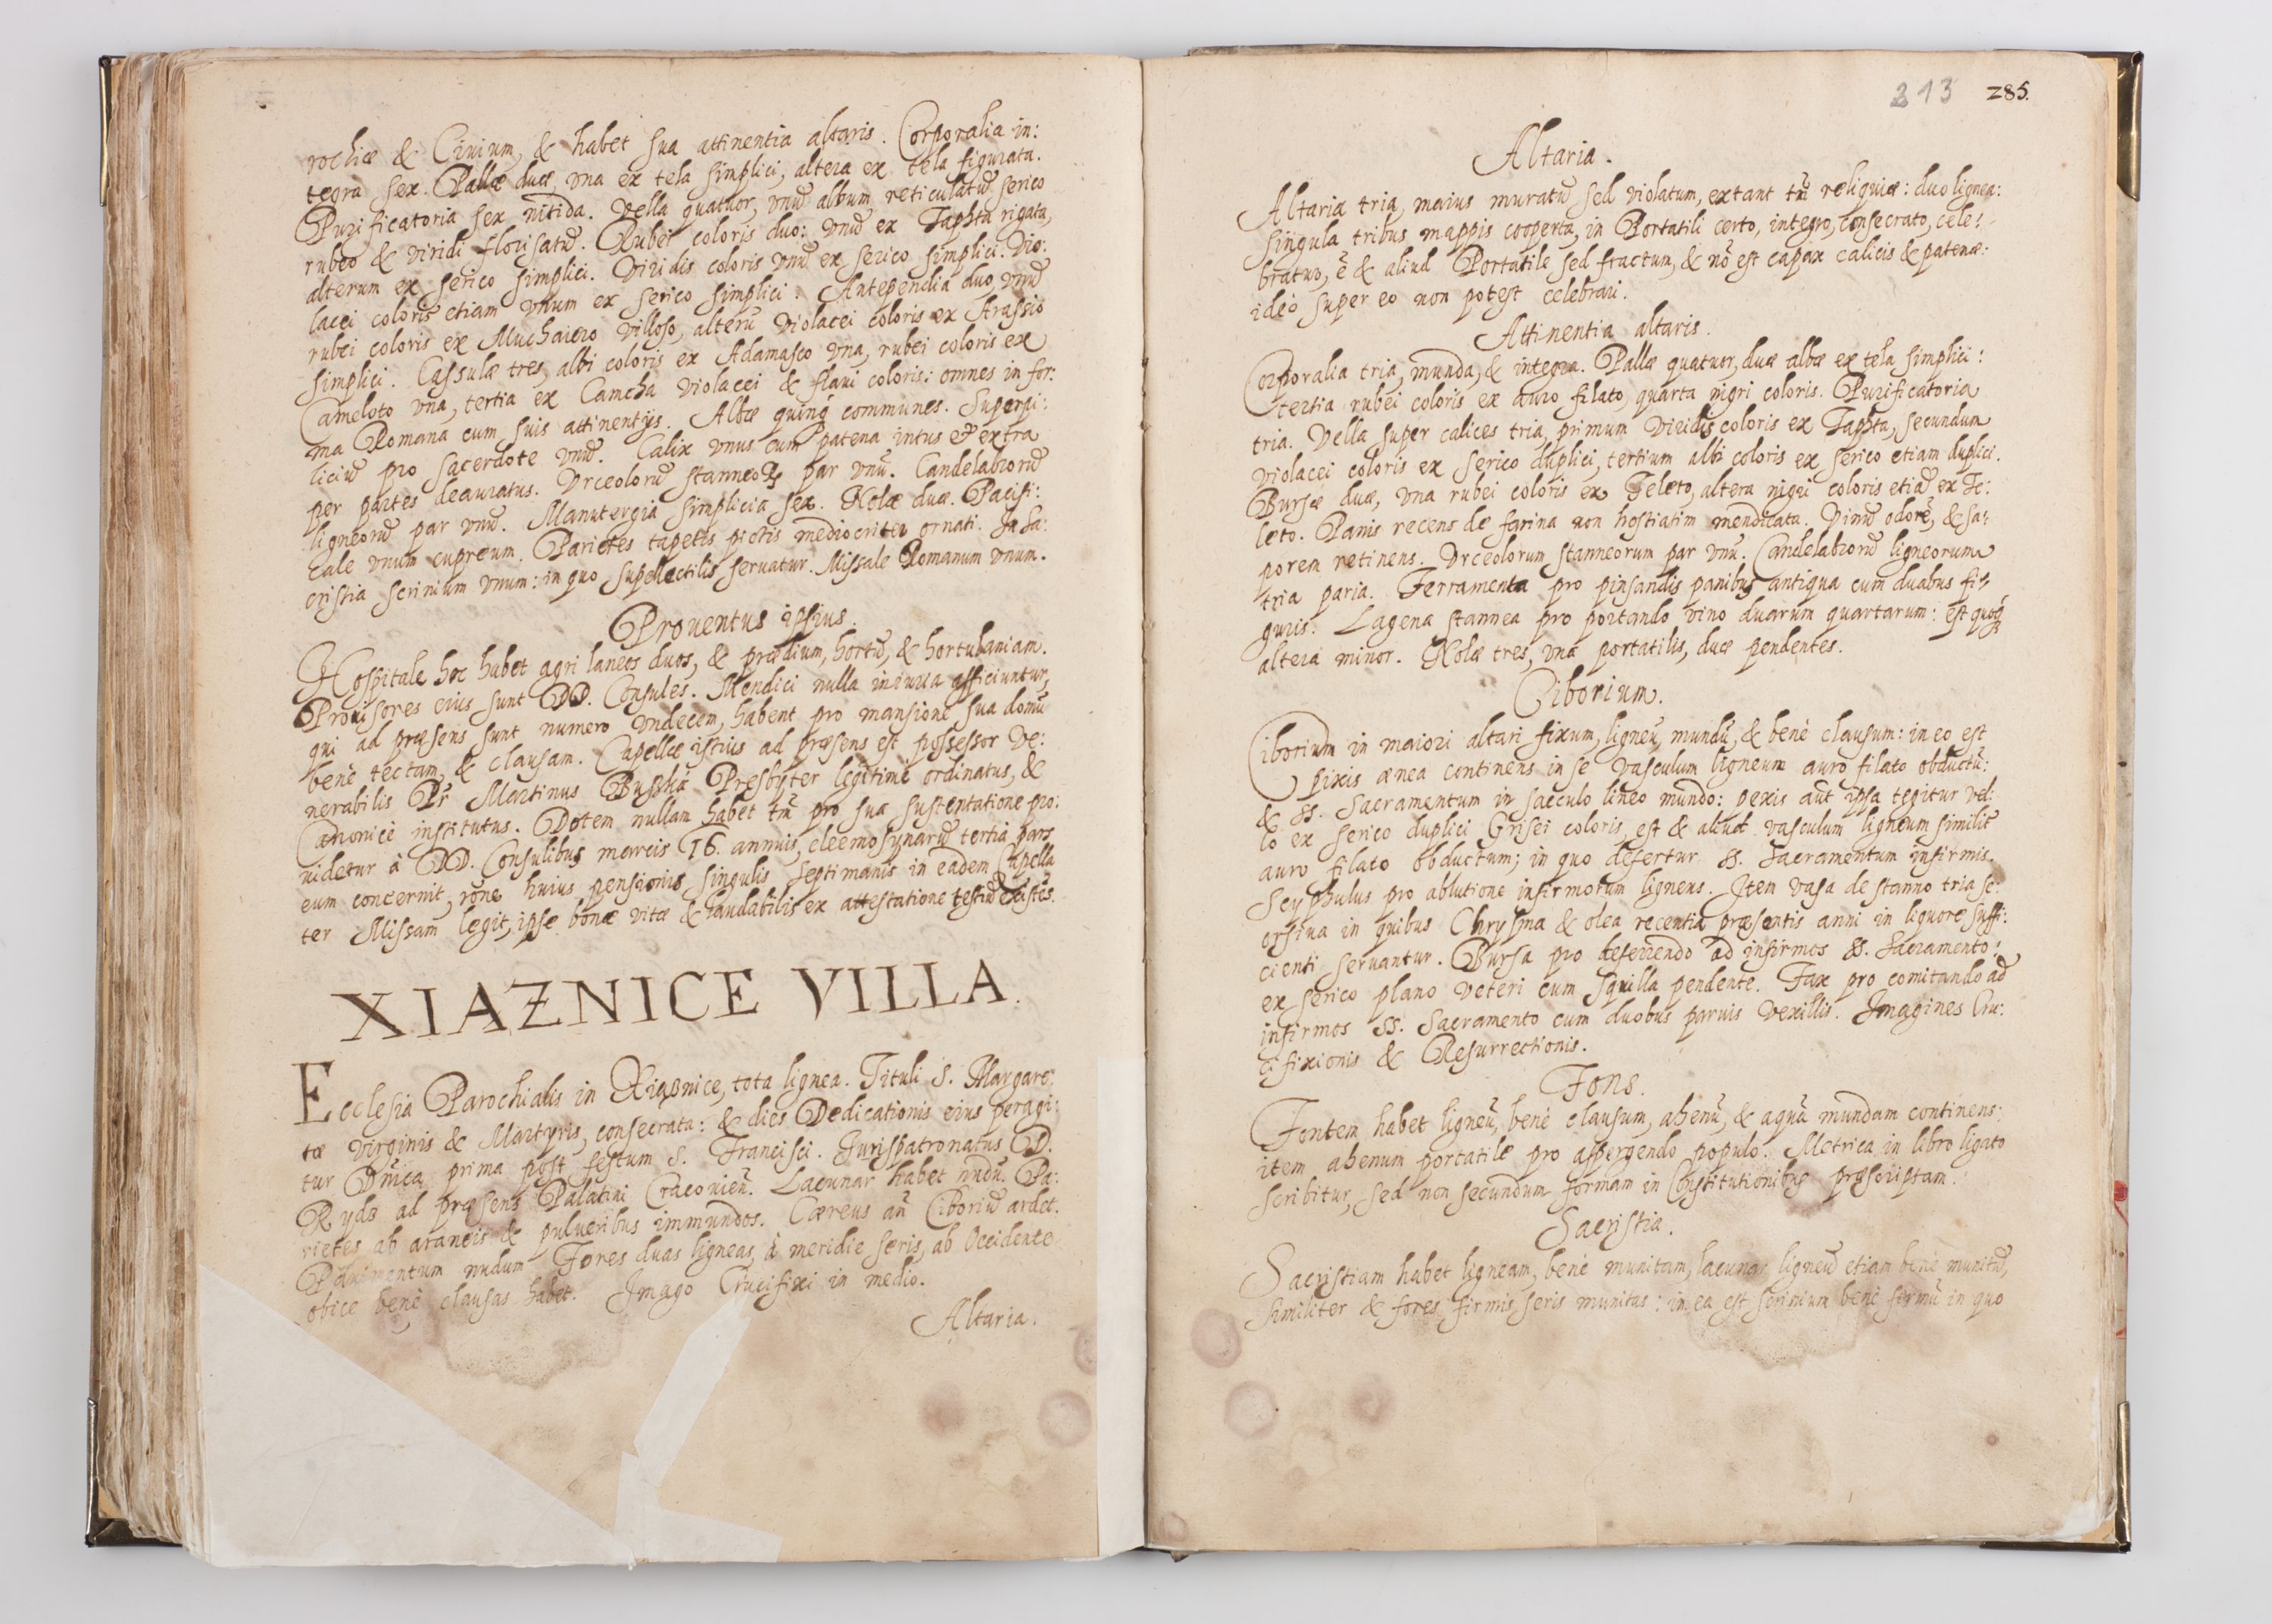 rochiæ & Ciuium, & habet sua attinentia altaris. Corporalia in:
tegra sex. Pallæ duæ, vna ex tela simplici, altera ex tela figurata.
Purificatoria sex nitida. Vella quatuor, vnũ album reticulatũ serico
rubeo & viridi florisatũ. Rubei coloris duo: vnũ ex Taphta rigata,
alterum ex serico simplici. Viridis coloris vnũ ex serico simplici. Vio:
lacei coloris etiam vnum ex serico simplici. Antependia duo, vnũ
rubei coloris ex Muchaiero villoso, alterũ violacei coloris ex Arassio
simplici. Cassulæ tres, albi coloris ex Adamasco vna, rubei coloris ex
Cameloto vna, tertia ex Camcha violacei & flaui coloris: omnes in for:
ma Romana cum suis attinentijs. Albæ quinq́ communes. Superpi:
liciũ pro sacerdote vnũ. Calix vnus cum patena intus & extra
per partes deauratus. Vrceolorũ stanneoꝝ par vnũ. Candelabrorũ
ligneorũ par vnũ. Manutergia simplicia sex. Nolæ duæ. Pacifi:
cale vnum cupreum. Parietes tapetis pictis mediocriter ornati. In Sa:
cristia scrinium vnum: in quo supellectilis seruatur. Missale Romanum vnum.
Prouentus ipsius.
Hospitale hoc habet agri laneos duos, & prædium, hortũ, & hortulaniam.
Prouisores eius sunt DD. Consules. Mendici nulla iniuria afficiuntur,
qui ad præsens sunt numero vndecem, habent pro mansione sua domũ
benè tectam, & clausam. Capellæ istius ad præsens est possessor Ve:
nerabilis Pr̃ Martinus Buskha Presbyter legitimè ordinatus, &
Canonicè institutus. Dotem nullam habet tm̃ pro sua sustentatione pro:
uidetur à DD. Consulibus marcis 16. annuis, eleemosynarũ tertia pars
eum concernit, rõne huius pensionis singulis septimanis in eadem Capella
ter Missam legit, ipse bonæ vitæ & laudabilis ex attestatione testiũ
XIAZNICE VILLA.
Ecclesia Parochialis in Xiąznice, tota lignea. Tituli S. Margare:
tæ Virginis & Martyris, consecrata: & dies Dedicationis eius peragi:
tur Dñica prima post festum S. Francisci. Jurispatronatus D.
Ryds ad præsens Palatini Cracouieñ. Lacunar habet nudũ. Pa:
rietes ab araneis & pulueribus immundos. Cæreus añ Ciboriũ ardet.
Pauimentum nudum Fores duas ligneas, à meridie seris, ab Occidente
obice benè clausas habet. Imago Crucifixi in medio.
Altaria.
213 285.
Altaria.
Altaria tria, maius muratũ sed violatum, extant tm̃ reliquiæ: duo lignea:
singula tribus mappis cooperta, in Portatili certo, integro, consecrato, cele:
bratur, ẽ & aliud Portatile sed fractum, & nõ est capax calicis & patenæ:
ideò super eo non potest celebrari.
Attinentia altaris.
Corporalia tria, munda, & integra. Pallæ quatuor, duæ albæ ex tela simplici:
tertia rubei coloris ex auro filato, quarta nigri coloris. Purificatoria
tria. Vella super calices tria, primum Viridis coloris ex Taphta, secundum
violacei coloris ex serico duplici, tertium albi coloris ex serico etiam duplici.
Bursæ duæ, vna rubei coloris ex Teleto, altera nigri coloris etiã ex Te:
leto. Panis recens de farina non hostiatim mendicata. Vinũ odorẽ, & sa:
porem retinens. Vrceolorum stanneorum par vnũ. Candelabrorũ ligneorum
tria paria. Ferramenta pro pinsandis panibus antiqua cum duabus fi:
guris. Lagena stannea pro portando vino duarum quartarum: est quoq́
altera minor. Nolæ tres, vna portatilis, duæ pendentes.
Ciborium.
Ciborium in maiori altari fixum, ligneũ, mundũ, & benè clausum: in eo est
pixis ænea continens in se vasculum ligneum auro filato obductũ:
& SS. Sacramentum in sacculo lineo mundo: pexis aũt ipsa tegitur vel:
lo ex serico duplici Grisei coloris, est & aliud vasculum ligneum similitr̃
auro filato obductum; in quo defertur SS. Sacramentum infirmis.
Scyphulus pro ablutione infirmorum ligneus. Item vasa de stanno tria se:
orsiua in quibus Chrysma & olea recentia præsentis anni in liquore suffi:
cienti seruantur. Bursa pro deferendo ad infirmos SS. Sacramento:
ex serico plano veteri cum squilla pendente. Fax pro comitando ad
infirmos SS. Sacramento cum duobus paruis vexillis. Imagines Cru:
cifixionis & Resurrectionis.
Fons.
Fontem habet ligneũ, benè clausum, ahenũ, & aquã mundam continens:
item ahenum portatile pro aspergendo populo. Metrica in libro ligato
scribitur, sed non secundum formam in Constitutionibus præscriptam.
Sacristia.
Sacristiam habet ligneam, benè munitam, lacunar ligneũ etiam benè munitũ,
similiter & fores firmis seris munitas: in ea est scrinium benè firmũ in quo